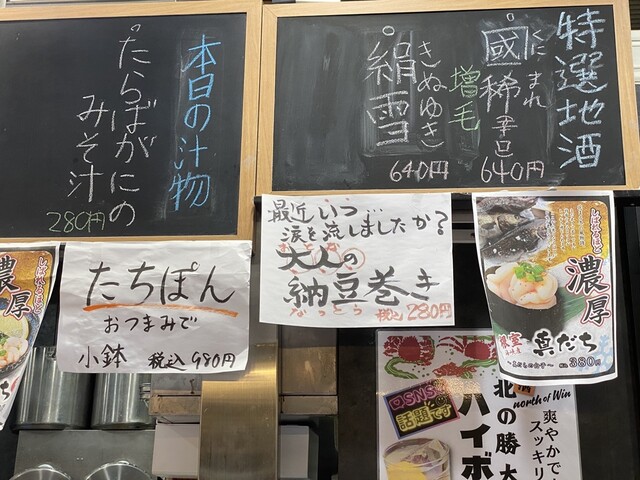 特選地酒
くにまれ
國稀 辛口
640円
増毛
きぬゆき
絹雪
640円
本日の汁物
たらばがにの
みそ汁
280円
最近いつ…
涙を流しましたか?
大人の
納豆巻き
なっとう
税込 280円
たちぽん
おつまみで
小鉢 税込 980円
しばれるほど
濃厚
真だち
〜真だらの白子〜
税込 380円
濃厚
しばれるほど
真だち
SNSで
話題です
ハイボ
北の勝 大
north of Win
爽やかで
スッキリ